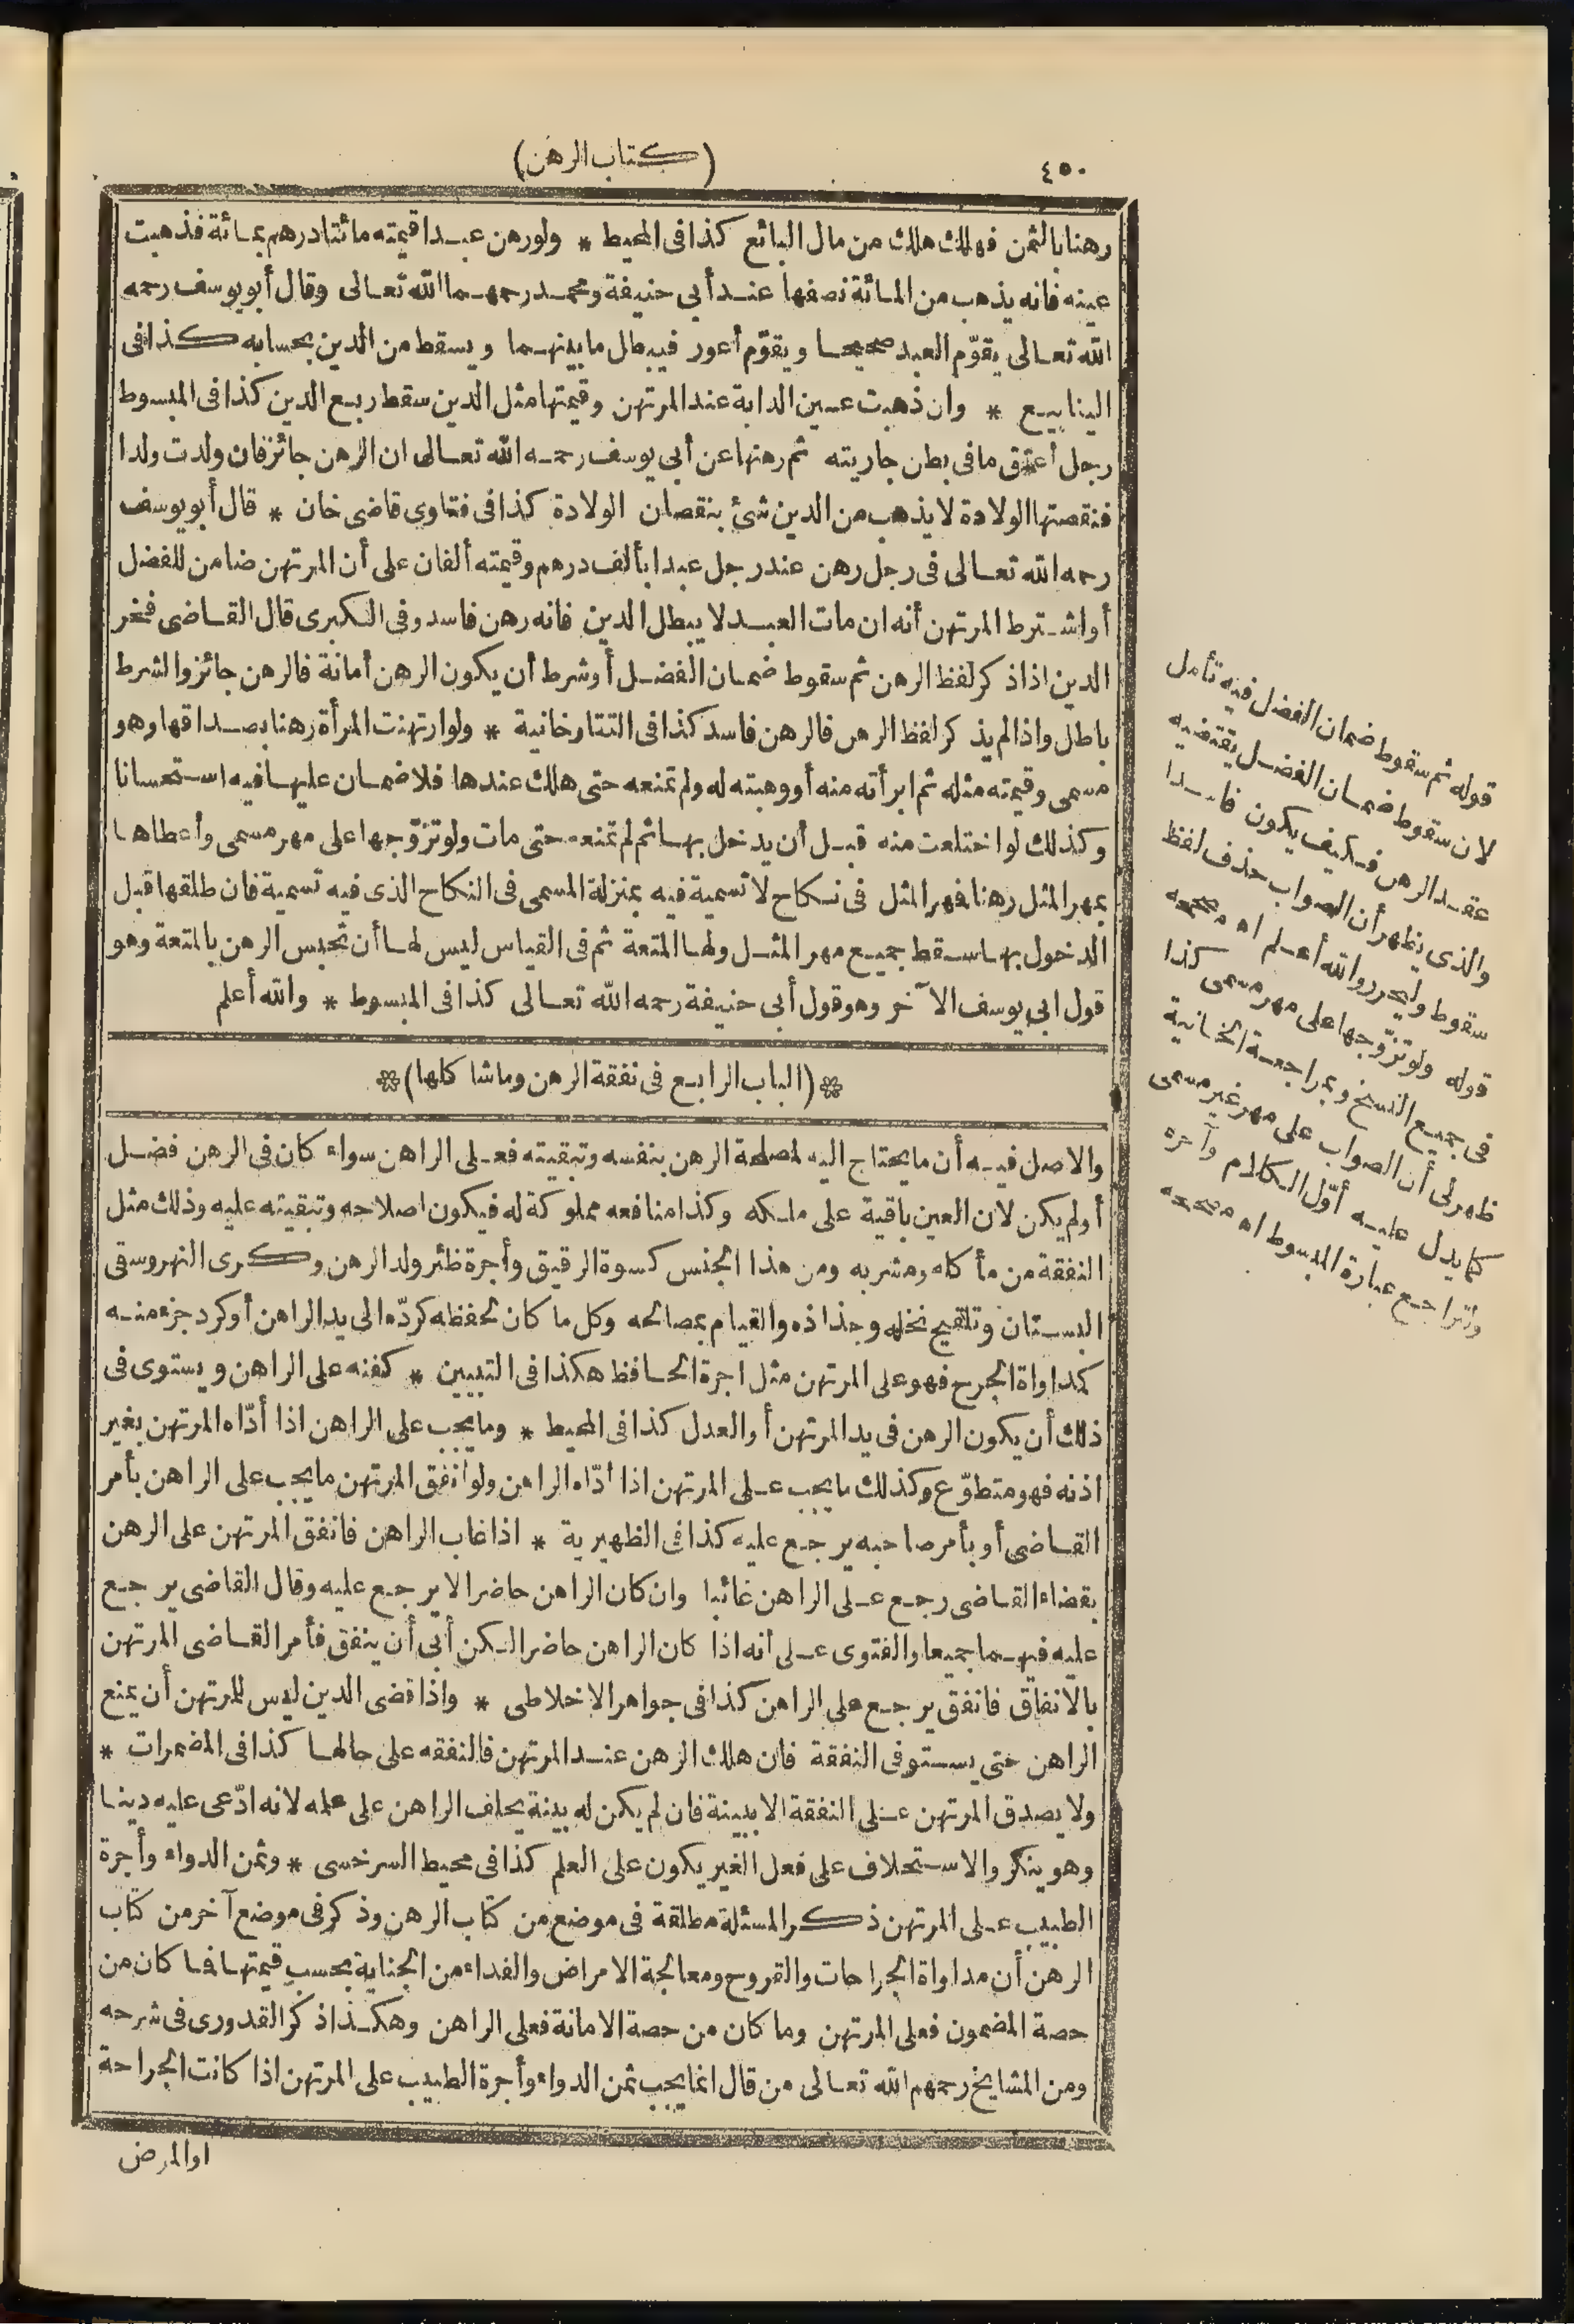 ٤٥٠
(كتاب الرهن)
رهنا بالثمن فهلك هلك من مال البائع كذا فى المحيط * ولو رهن عبدا قيمته مائتا درهم بمائة فذهبت
عينه فانه يذهب من المائة نصفها عند أبى حنيفة ومحمد رحمهما الله تعالى وقال أبو يوسف رحمه
الله تعالى يقوّم العبد صحيحا ويقوّم أعور فيبطل ما بينهما ويسقط من الدين بحسابه كذا فى
الينابيع * وان ذهبت عين الدابة عند المرتهن وقيمتها مثل الدين سقط ربع الدين كذا فى المبسوط
رجل أعتق ما فى بطن جاريته ثم رهنها عن أبى يوسف رحمه الله تعالى ان الرهن جائز فان ولدت ولدا
فنقصتها الولادة لا يذهب من الدين شئ بنقصان الولادة كذا فى فتاوى قاضى خان * قال أبو يوسف
رحمه الله تعالى فى رجل رهن عند رجل عبدا بألف درهم وقيمته ألفان على أن المرتهن ضامن للفضل
أو اشترط المرتهن أنه ان مات العبد لا يبطل الدين فانه رهن فاسد وفى الكبرى قال القاضى فخر
الدين اذا ذكر لفظ الرهن ثم سقوط ضمان الفضل أو شرط أن يكون الرهن أمانة فالرهن جائز والشرط
باطل واذا لم يذكر لفظ الرهن فالرهن فاسد كذا فى التتارخانية * ولو ارتهنت المرأة رهنا بصداقها وهو
مسمى وقيمته مثله ثم ابرأته منه أو وهبته له ولم تمنعه حتى هلك عندها فلا ضمان عليها فيه استحسانا
وكذلك لو اختلعت منه قبل أن يدخل بها ثم لم تمنعه حتى مات ولو تزوّجها على مهر مسمى وأعطاها
بمهر المثل رهنا فمهر المثل فى نكاح لا تسمية فيه بمنزلة المسمى فى النكاح الذى فيه تسمية فان طلقها قبل
الدخول بها سقط جميع مهر المثل ولها المتعة ثم فى القياس ليس لها أن تحبس الرهن بالمتعة وهو
قول ابى يوسف الآخر وهو قول أبى حنيفة رحمه الله تعالى كذا فى المبسوط * والله أعلم
* (الباب الرابع فى نفقة الرهن وما شاكلها) *
والاصل فيه أن ما يحتاج اليه لمصلحة الرهن بنفسه وتبقيته فعلى الراهن سواء كان فى الرهن فضل
أولم يكن لان العين باقية على ملكه وكذا منافعه مملوكة له فيكون اصلاحه وتبقيته عليه وذلك مثل
النفقة من مأكله ومشربه ومن هذا الجنس كسوة الرقيق وأجرة ظئر ولد الرهن وكرى النهر وسقى
البستان وتلقيح نخله وجذاذه والقيام بمصالحه وكل ما كان لحفظه كردّه الى يد الراهن أو كرد جزء منه
كمداواة الجرح فهو على المرتهن مثل اجرة الحافظ هكذا فى التبيين * كفنه على الراهن ويستوى فى
ذلك أن يكون الرهن فى يد المرتهن أو العدل كذا فى المحيط * وما يجب على الراهن اذا أدّاه المرتهن بغير
اذنه فهو متطوّع وكذلك ما يجب على المرتهن اذا ادّاه الراهن ولو انفق المرتهن ما يجب على الراهن بأمر
القاضى أو بأمر صاحبه يرجع عليه كذا فى الظهيرية * اذا غاب الراهن فانفق المرتهن على الرهن
بقضاء القاضى رجع على الراهن غائبا وان كان الراهن حاضرا لا يرجع عليه وقال القاضى يرجع
عليه فيهما جميعا والفتوى على انه اذا كان الراهن حاضرا لكن أبى أن ينفق فأمر القاضى المرتهن
بالانفاق فانفق يرجع على الراهن كذا فى جواهر الاخلاطى * واذا قضى الدين ليس للمرتهن أن يمنع
الراهن حتى يستوفى النفقة فان هلك الرهن عند المرتهن فالنفقه على حالها كذا فى المضمرات *
ولا يصدق المرتهن على النفقة الا ببينة فان لم يكن له بينة يحلف الراهن على علمه لانه ادّعى عليه دينا
وهو ينكر والاستحلاف على فعل الغير يكون على العلم كذا فى محيط السرخسى * وثمن الدواء وأجرة
الطبيب على المرتهن ذكر المسئلة مطلقة فى موضع من كتاب الرهن وذكر فى موضع آخر من كتاب
الرهن أن مداواة الجراحات والقروح ومعالجة الامراض والفداء من الجناية بحسب قيمتها فما كان من
حصة المضمون فعلى المرتهن وما كان من حصة الامانة فعلى الراهن وهكذا ذكر القدورى فى شرحه
ومن المشايخ رحمهم الله تعالى من قال انما يجب ثمن الدواء وأجرة الطبيب على المرتهن اذا كانت الجراحة
او المرض
قوله ثم سقوط ضمان الفضل فيه تأمل
لان سقوط ضمان الفضل يقتضيه
عقد الرهن فكيف يكون فاسدا
والذى يظهر أن الصواب حذف لفظ
سقوط وليحرر والله أعلم اه مصححه
قوله ولو تزوّجها على مهر مسمى كذا
فى جميع النسخ وبمراجعة الخانية
ظهر لى أن الصواب على مهر غير مسمى
كما يدل عليه أوّل الكلام وآخره
ولتراجع عبارة المبسوط اه مصححه